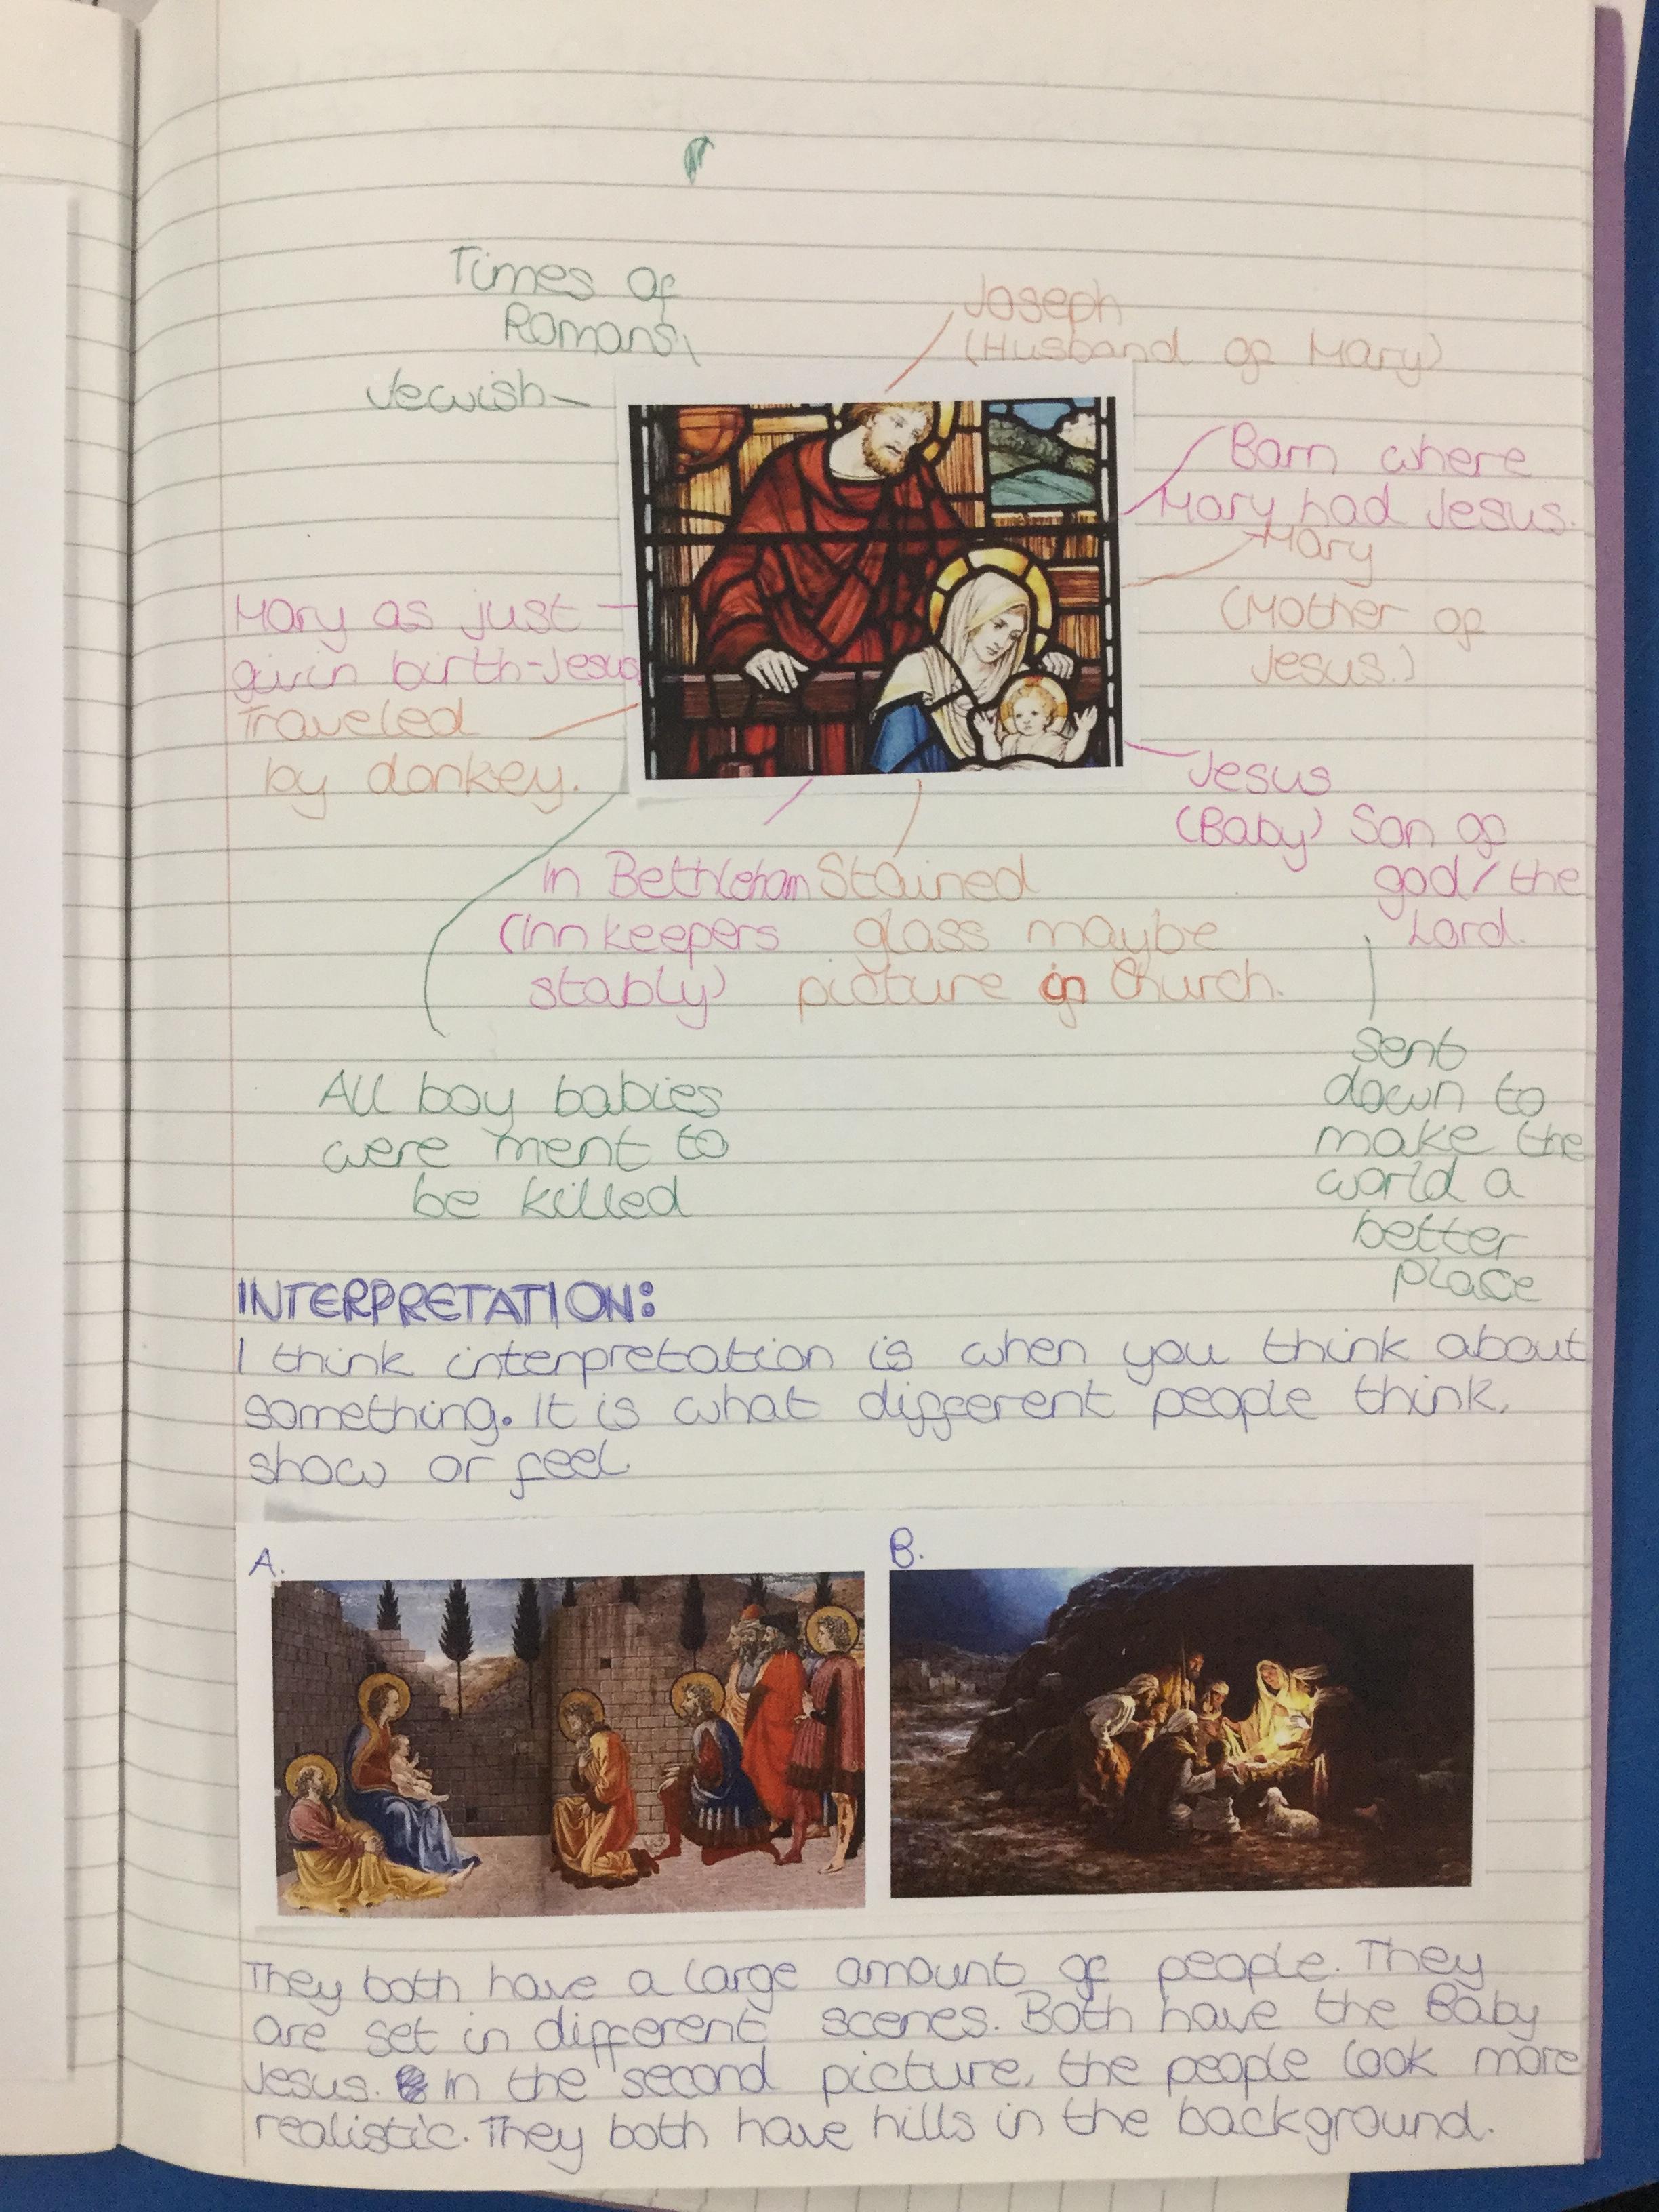 Times of
Romans
Jewish
Joseph
(Husband of Mary)
Barn where
Mary had Jesus.
Mary
(Mother of
Jesus.)
Mary as just
givin birth-Jesus
Traveled
by donkey.
Jesus
(Baby) Son of
god/the
Lord.
In Bethleham
(Inn keepers
stably)
Stained
glass maybe
picture in Church.
All boy babies
were ment to
be killed
Sent
down to
make the
world a
better
place
INTERPRETATION:
I think interpretation is when you think about
something. It is what different people think,
show or feel.
A.
B.
They both have a large amount of people. They
are set in different scenes. Both have the Baby
Jesus. In the second picture, the people look more
realistic. They both have hills in the background.